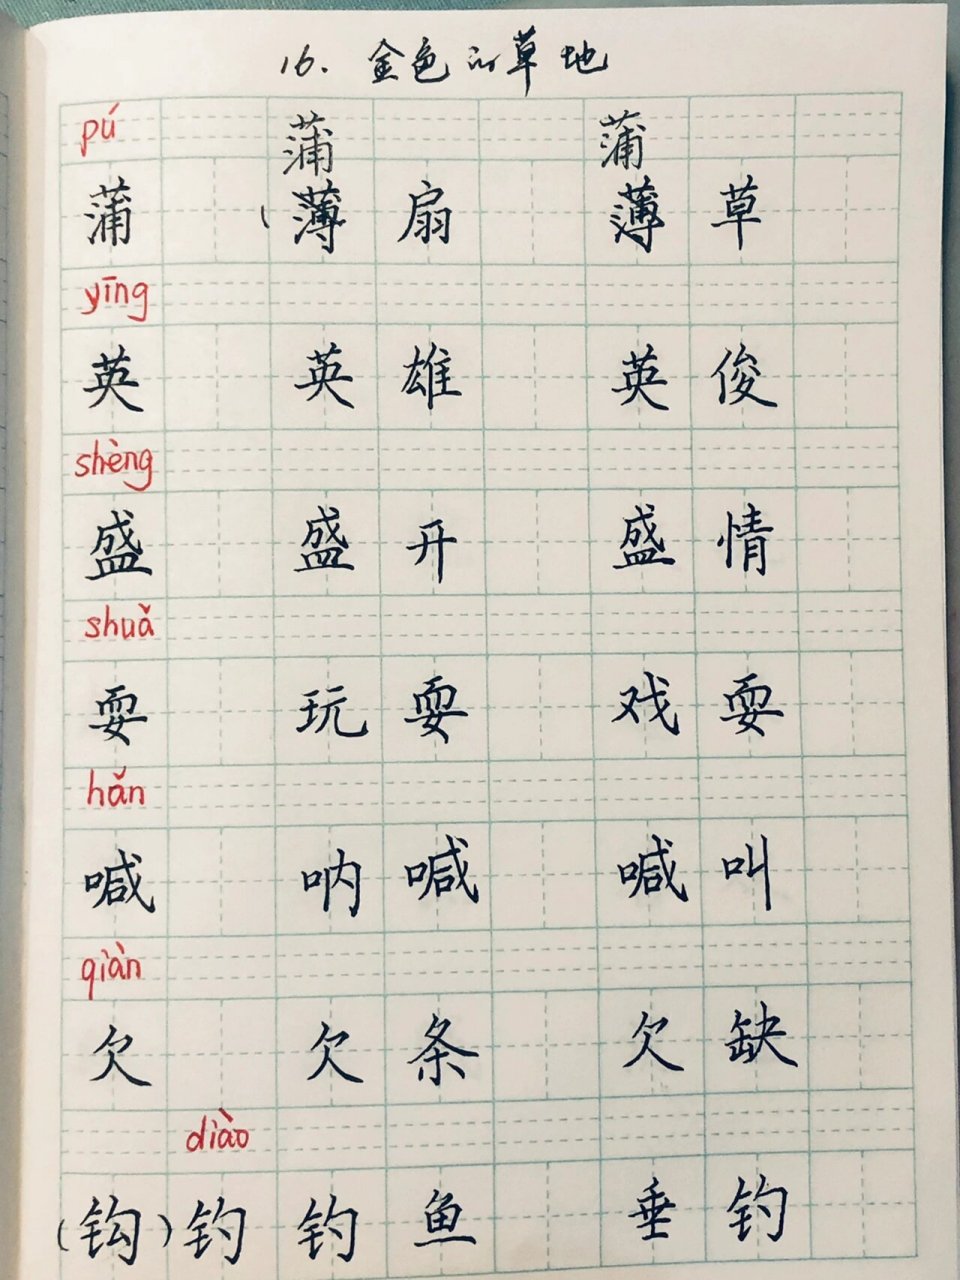 16. 金色的草地
pú
蒲 蒲
蒲 薄扇 薄草
yīng
英 英雄 英俊
shèng
盛 盛开 盛情
shuǎ
耍 玩耍 戏耍
hǎn
喊 呐喊 喊叫
qiàn
欠 欠条 欠缺
diào
(钩)钓 钓鱼 垂钓